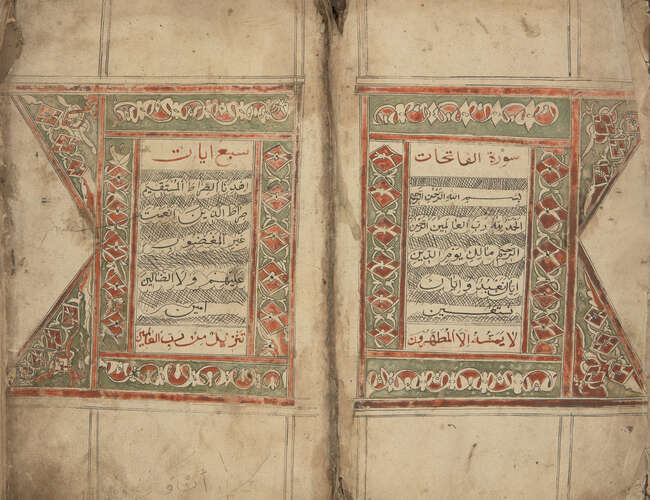 سورة الفاتحات
بسم الله الرحمن الرحيم
الحمد لله رب العالمين الرحمن
الرحيم مالك يوم الدين
اياك نعبد واياك ن
ستعين
لا يمسه الا المطهرون
سبع ايات
اهدنا الصراط المستقيم
صراط الذين انعمت
غير المغضوب
عليهم ولا الضالين
امين
تنزيل من رب العالمين